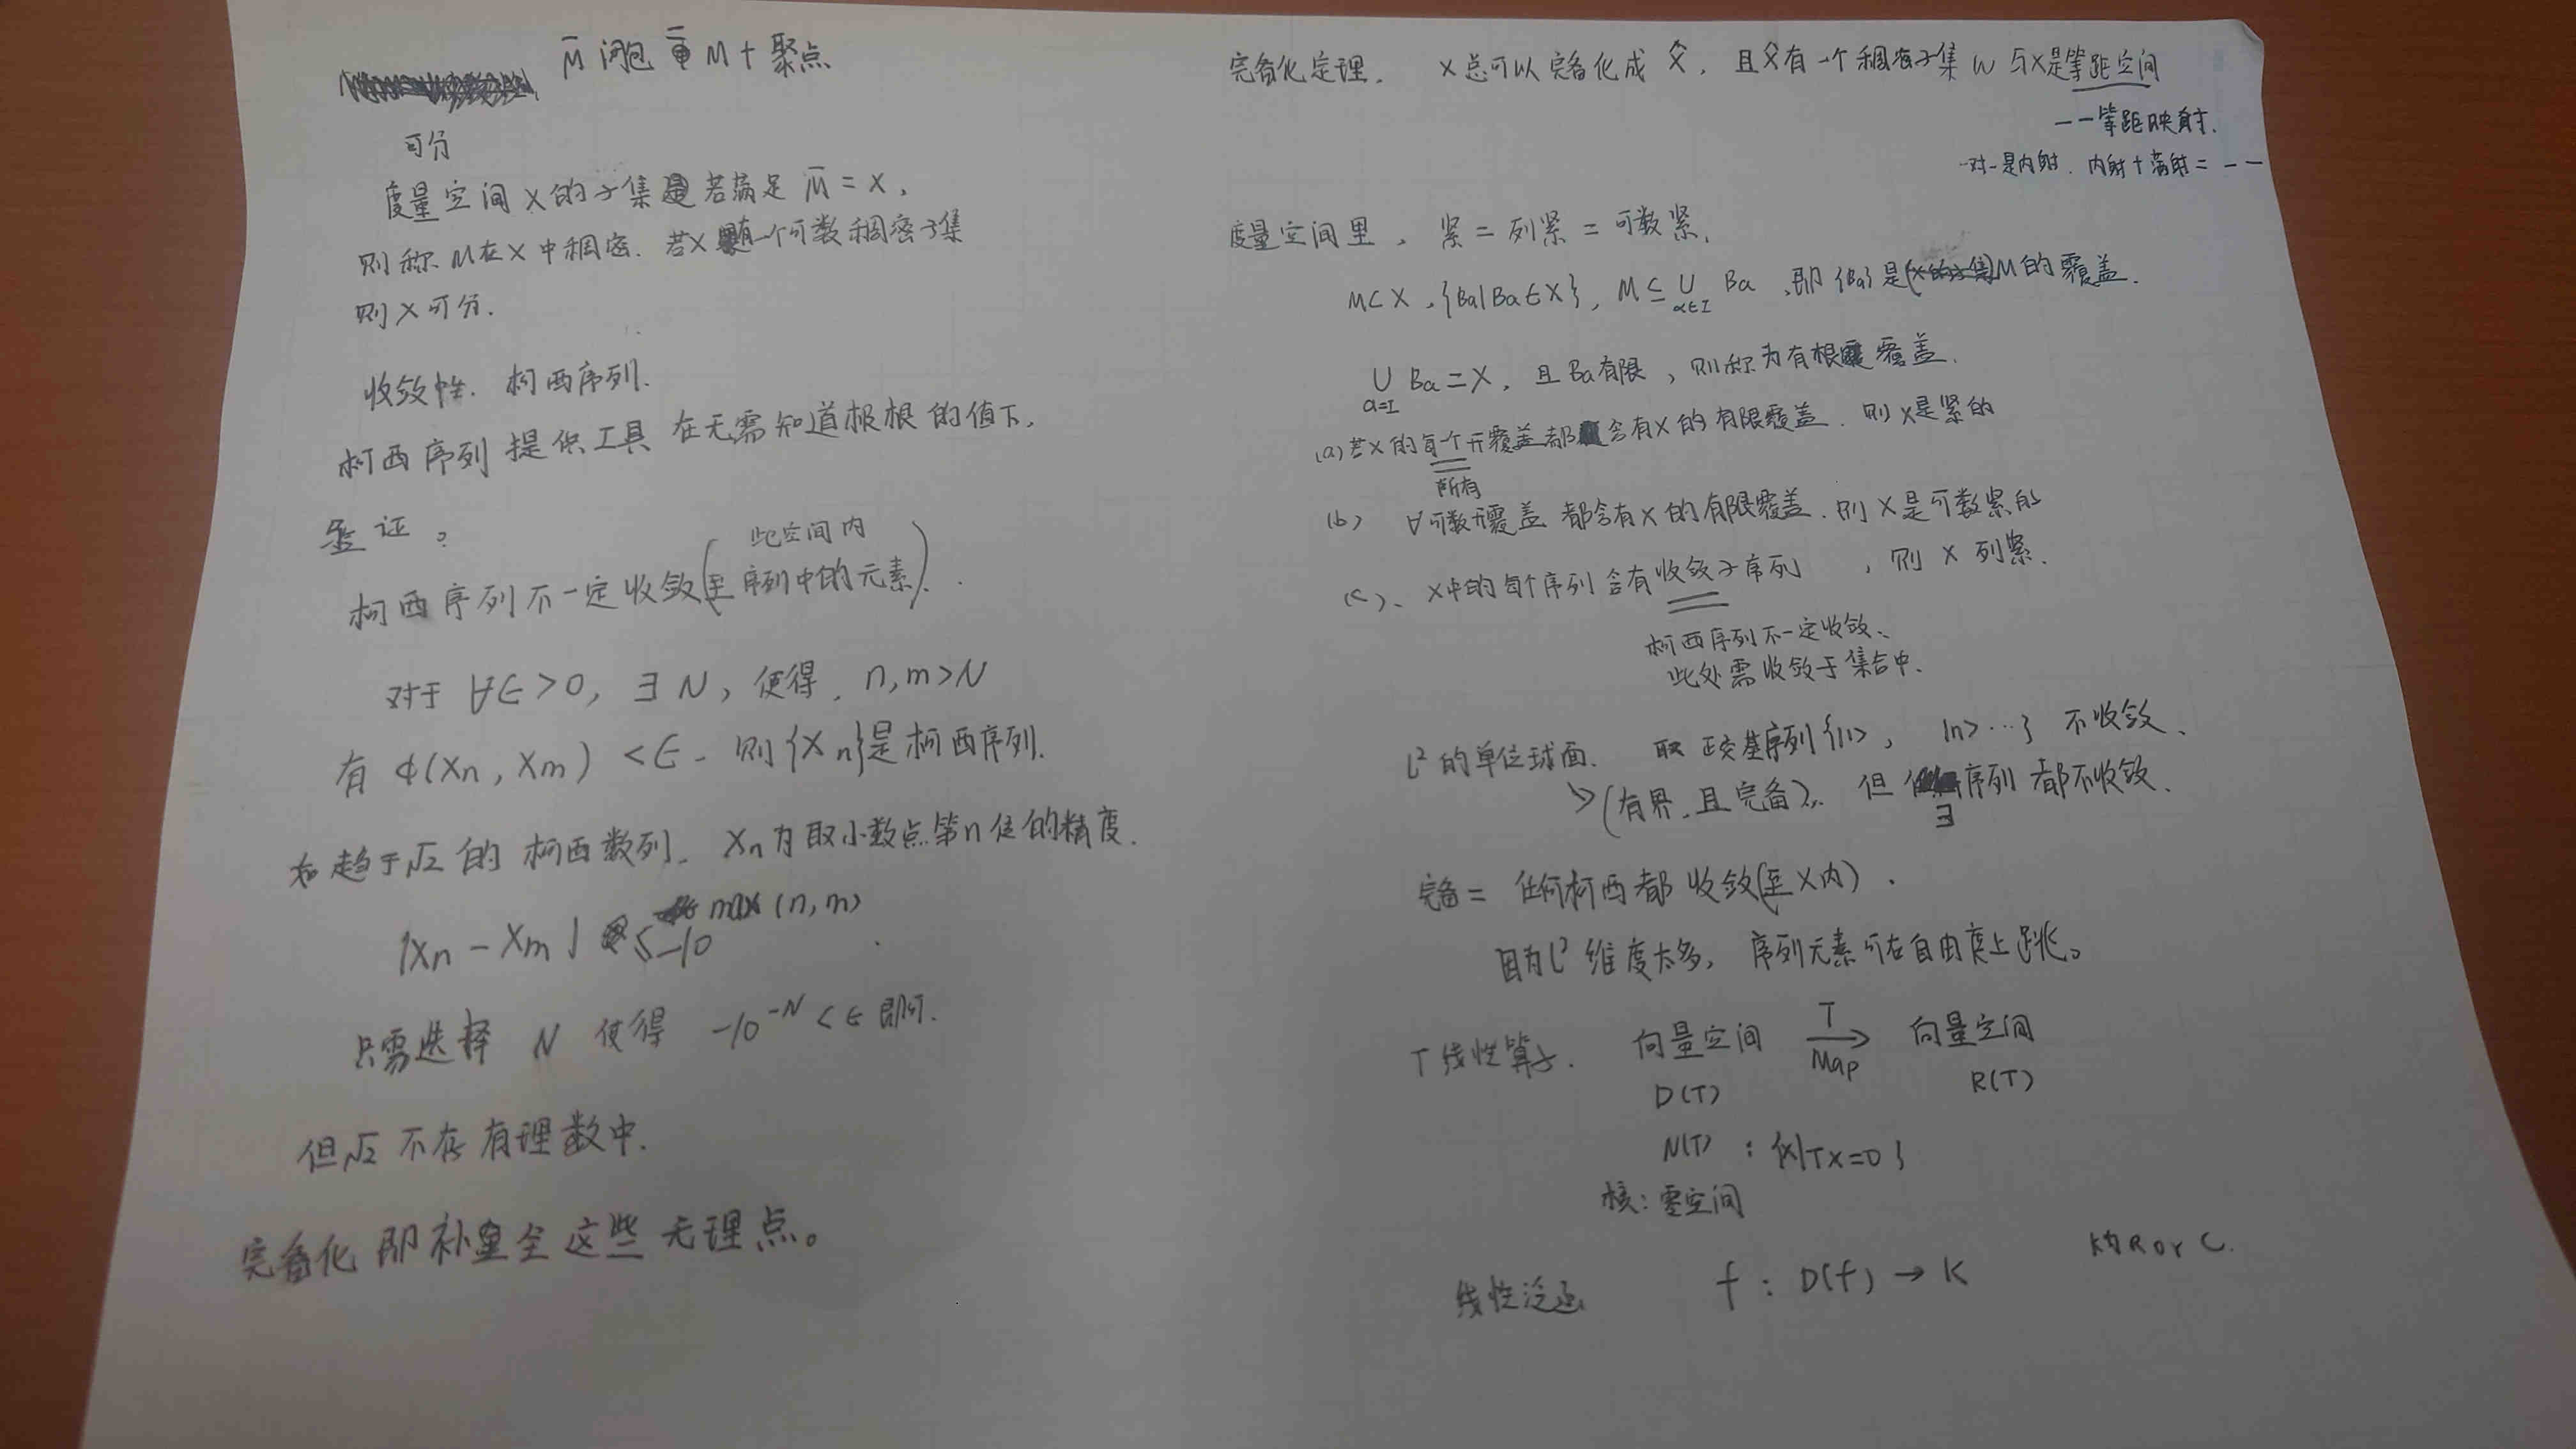 M̄ 闭包 M + 聚点
可分
度量空间 X 的子集 若满足 M̄ = X,
则称 M 在 X 中稠密. 若 X 有一个可数稠密子集
则 X 可分.
收敛性. 柯西序列.
柯西序列 提供工具 在无需知道极根的值下,
验证。
柯西序列不一定收敛(至 此空间内 序列中的元素).
对于 ∀ε>0, ∃ N, 使得, n,m>N
有 d(Xn, Xm) <ε. 则{Xn}是柯西序列.
如趋于√2 的 柯西数列. Xn 为取小数点第n位的精度.
|Xn - Xm| ≤ -10 max(n,m)
只需选择 N 使得 -10^-N < ε 即可.
但√2 不存有理数中.
完备化 即补全这些无理点。
完备化定理. X总可以完备化成 X̂, 且X̂有一个稠密子集 W 与X是等距空间
一一等距映射.
一对一是内射. 内射+满射= 一一
度量空间里, 紧 = 列紧 = 可数紧.
M⊂X, {Ba|Ba∈X}, M ⊆ ∪ Ba, 即{Ba}是M的覆盖.
α∈I
∪ Ba = X, 且Ba有限, 则称为有根覆盖.
a=I
(a)若X的每个开覆盖都含有X的有限覆盖. 则X是紧的
所有
(b) ∀可数开覆盖 都含有X的有限覆盖. 则X是可数紧的
(c)、X中的每个序列 含有收敛子序列, 则 X 列紧.
柯西序列不一定收敛、
此处需收敛于集合中.
l² 的单位球面. 取 正交基序列{|1>, |n>…} 不收敛、
(有界.且完备), 但 ∃ 序列 都不收敛.
完备 = 任何柯西都 收敛(至X内).
因为l² 维度太多, 序列元素可在自由度上跳。
T 线性算子. 向量空间 T→ Map 向量空间
D(T) R(T)
N(T) : {x|Tx=0}
核: 零空间
线性泛函 f : D(f) → K K为R or C.